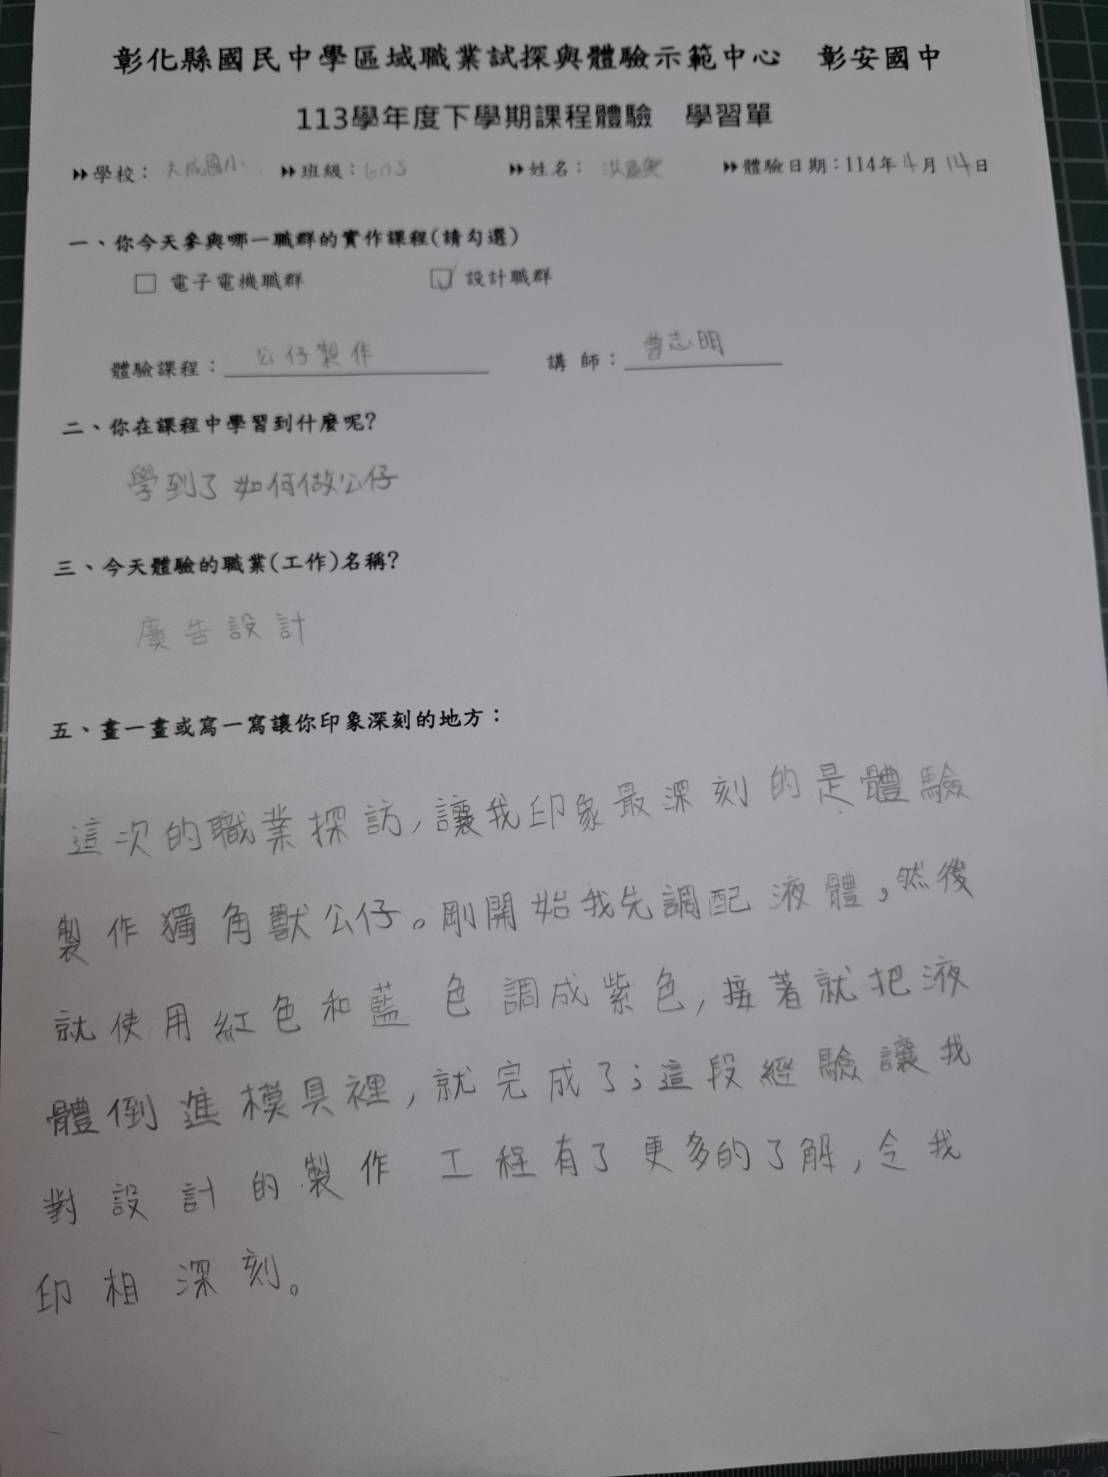 彰化縣國民中學區域職業試探與體驗示範中心 彰安國中
113學年度下學期課程體驗 學習單
學校：大成國小 班級：603 姓名：洪 體驗日期：114年4月14日
一、你今天參與哪一職群的實作課程(請勾選)
□ 電子電機職群 ☑ 設計職群
體驗課程：公仔製作 講師：曹志明
二、你在課程中學習到什麼呢?
學到了如何做公仔
三、今天體驗的職業(工作)名稱?
廣告設計
五、畫一畫或寫一寫讓你印象深刻的地方：
這次的職業探訪,讓我印象最深刻的是體驗
製作獨角獸公仔。剛開始我先調配液體,然後
就使用紅色和藍色調成紫色,接著就把液
體倒進模具裡,就完成了;這段經驗讓我
對設計的製作工程有了更多的了解,令我
印相深刻。